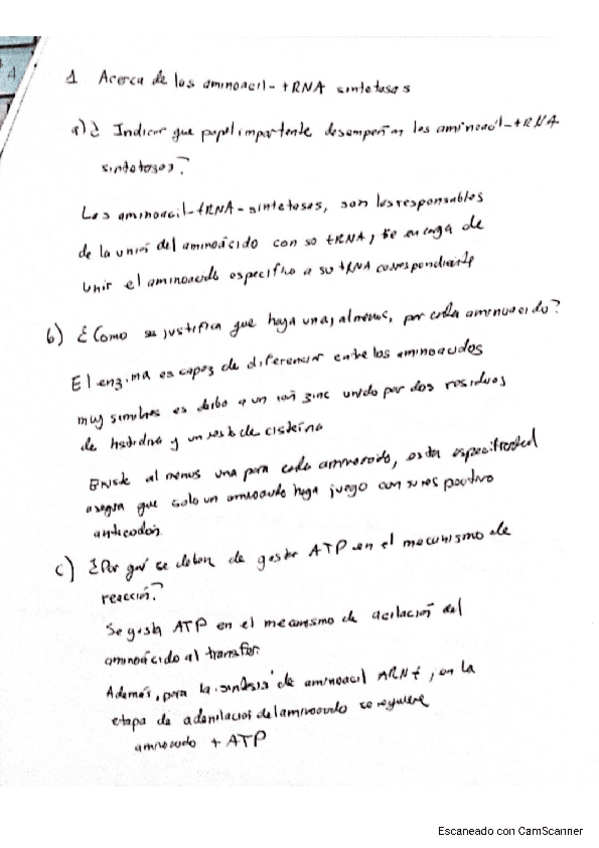 1 Acerca de los aminoacil-tRNA sintetasas
a) ¿ Indicar que papel importante desempeñan los aminoacil-tRNA
sintetasas?
Las aminoacil-tRNA-sintetasas, son los responsables
de la unión del aminoácido con so tRNA, se encarga de
unir el aminoacido especifico a su tRNA correspondiente
b) ¿Como se justifica que haya una, al menos, por cada aminoacido?
El enzima es capaz de diferenciar entre los aminoacidos
muy similares es debido a un ion zinc unido por dos residuos
de histidina y un resto de cisteina
Existe al menos una para cada aminoacido, esta especificidad
asegura que solo un aminoacido haga juego con su respectivo
anticodon.
c) ¿Por qué se deben de gastar ATP en el mecanismo de
reacción?
Se gasta ATP en el mecanismo de acilación del
aminoácido al transfer.
Además, para la sintesis de aminoacil ARNt, en la
etapa de adenilacion del aminoacido se requiere
aminoacido + ATP
Escaneado con CamScanner